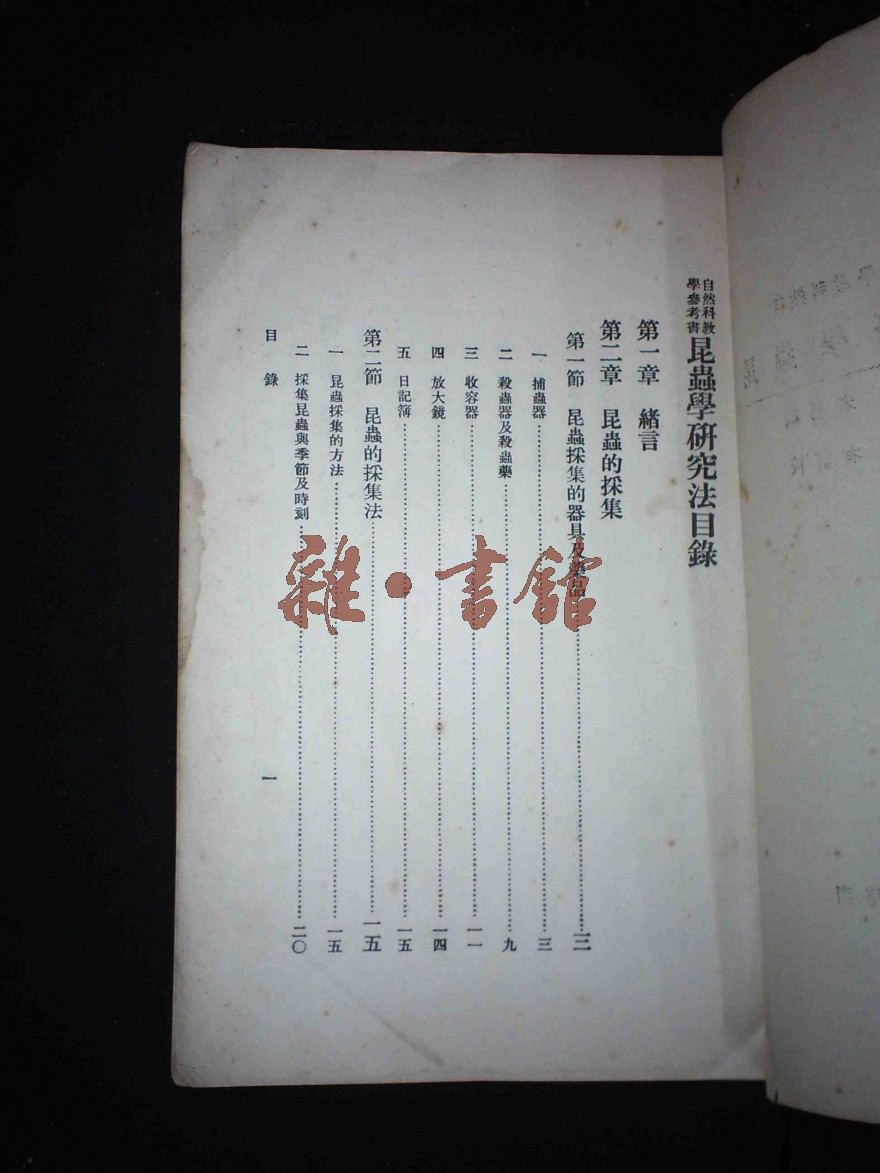 自然科教學參考書 昆蟲學研究法目錄
第一章 緒言
第二章 昆蟲的採集
第一節 昆蟲採集的器具及藥品……三
一 捕蟲器……三
二 殺蟲器及殺蟲藥……九
三 收容器……一一
四 放大鏡……一四
五 日記簿……一五
第二節 昆蟲的採集法……一五
一 昆蟲採集的方法……一五
二 採集昆蟲與季節及時刻……二〇
目錄
一
雜·書館